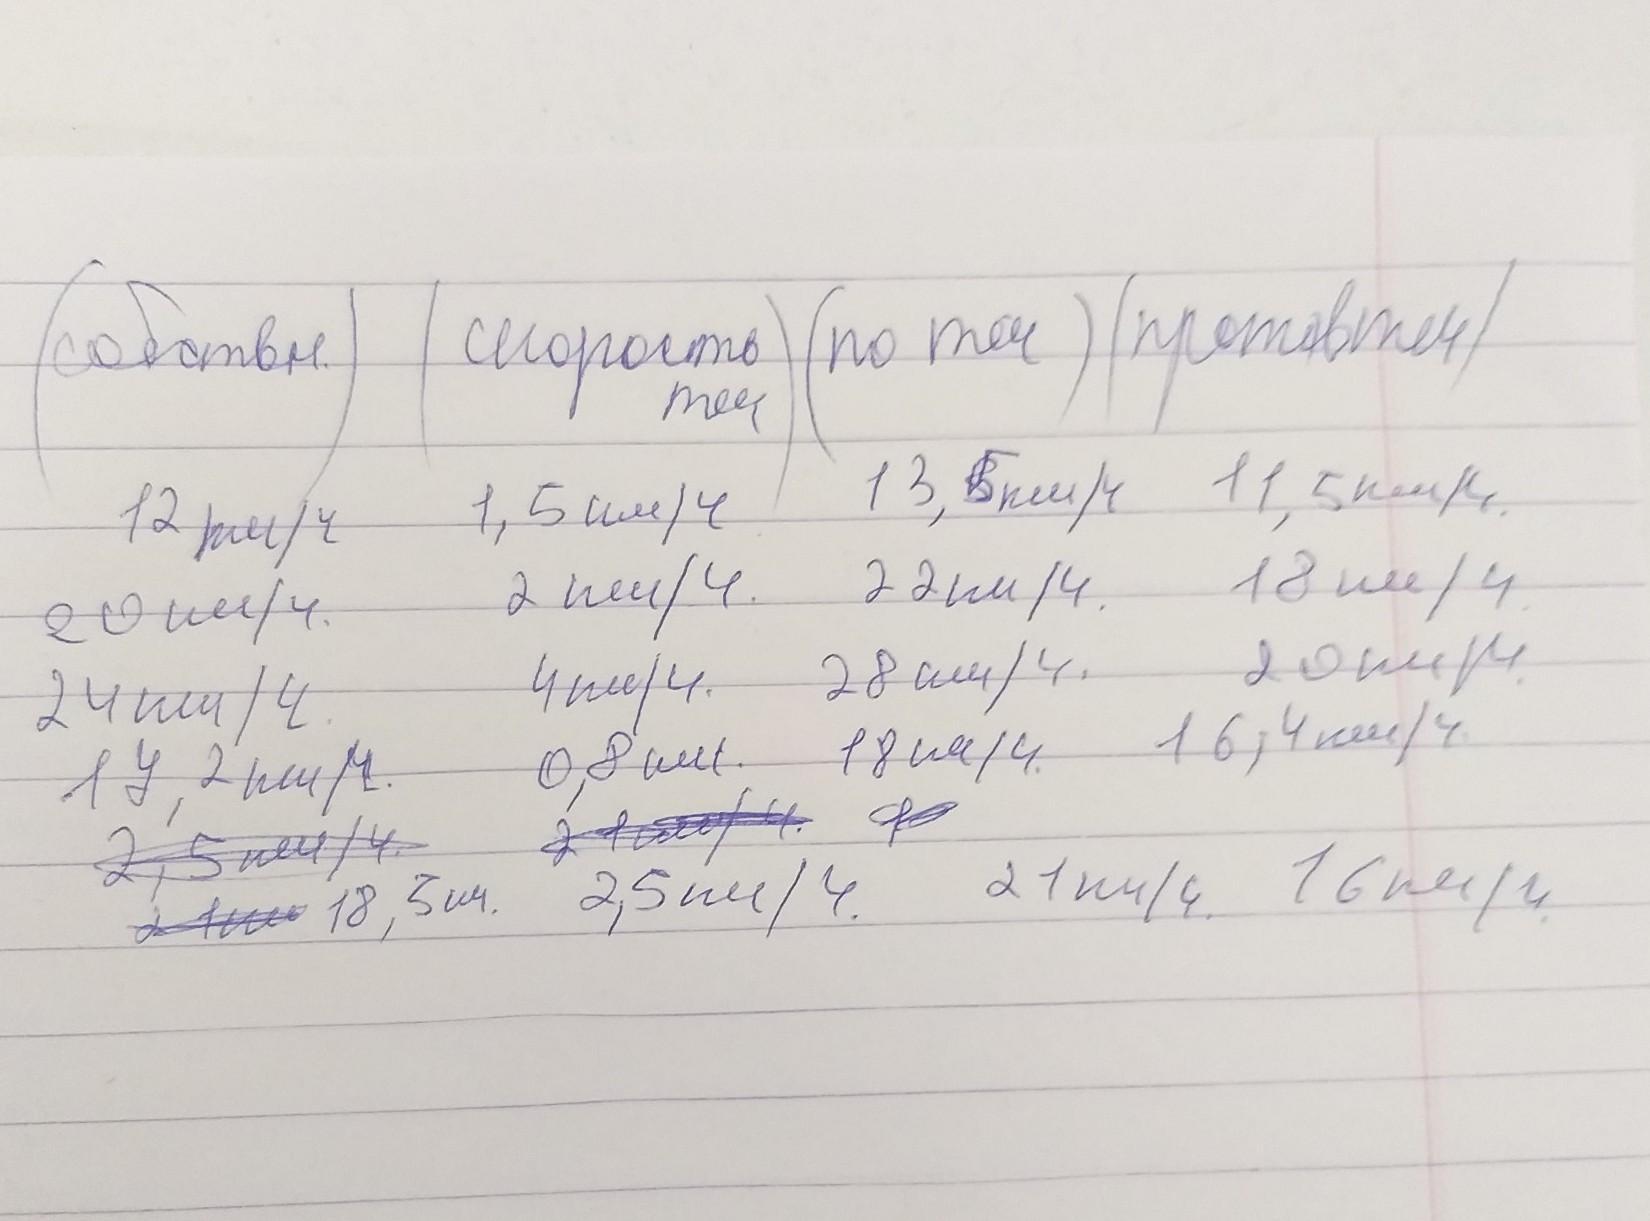 (собствен.) (скорость) (по теч) (против теч)
теч
12км/ч 1,5км/ч 13,5км/ч 11,5км/ч.
20км/ч. 2км/ч. 22км/ч. 18км/ч.
24км/ч. 4км/ч. 28км/ч. 20км/ч.
17,2км/ч. 0,8км. 18км/ч. 16,4км/ч.
2,5км/ч. 21км/ч.
21км 18,5км. 2,5км/ч. 21км/ч. 16км/ч.